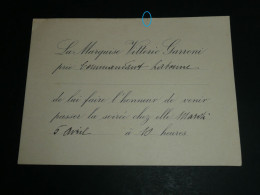 La Marquise Vittorio Guerroni
prie Commandant
de lui faire l'honneur de venir
passer la soirée chez elle Mardi
5 Avril à 10 heures